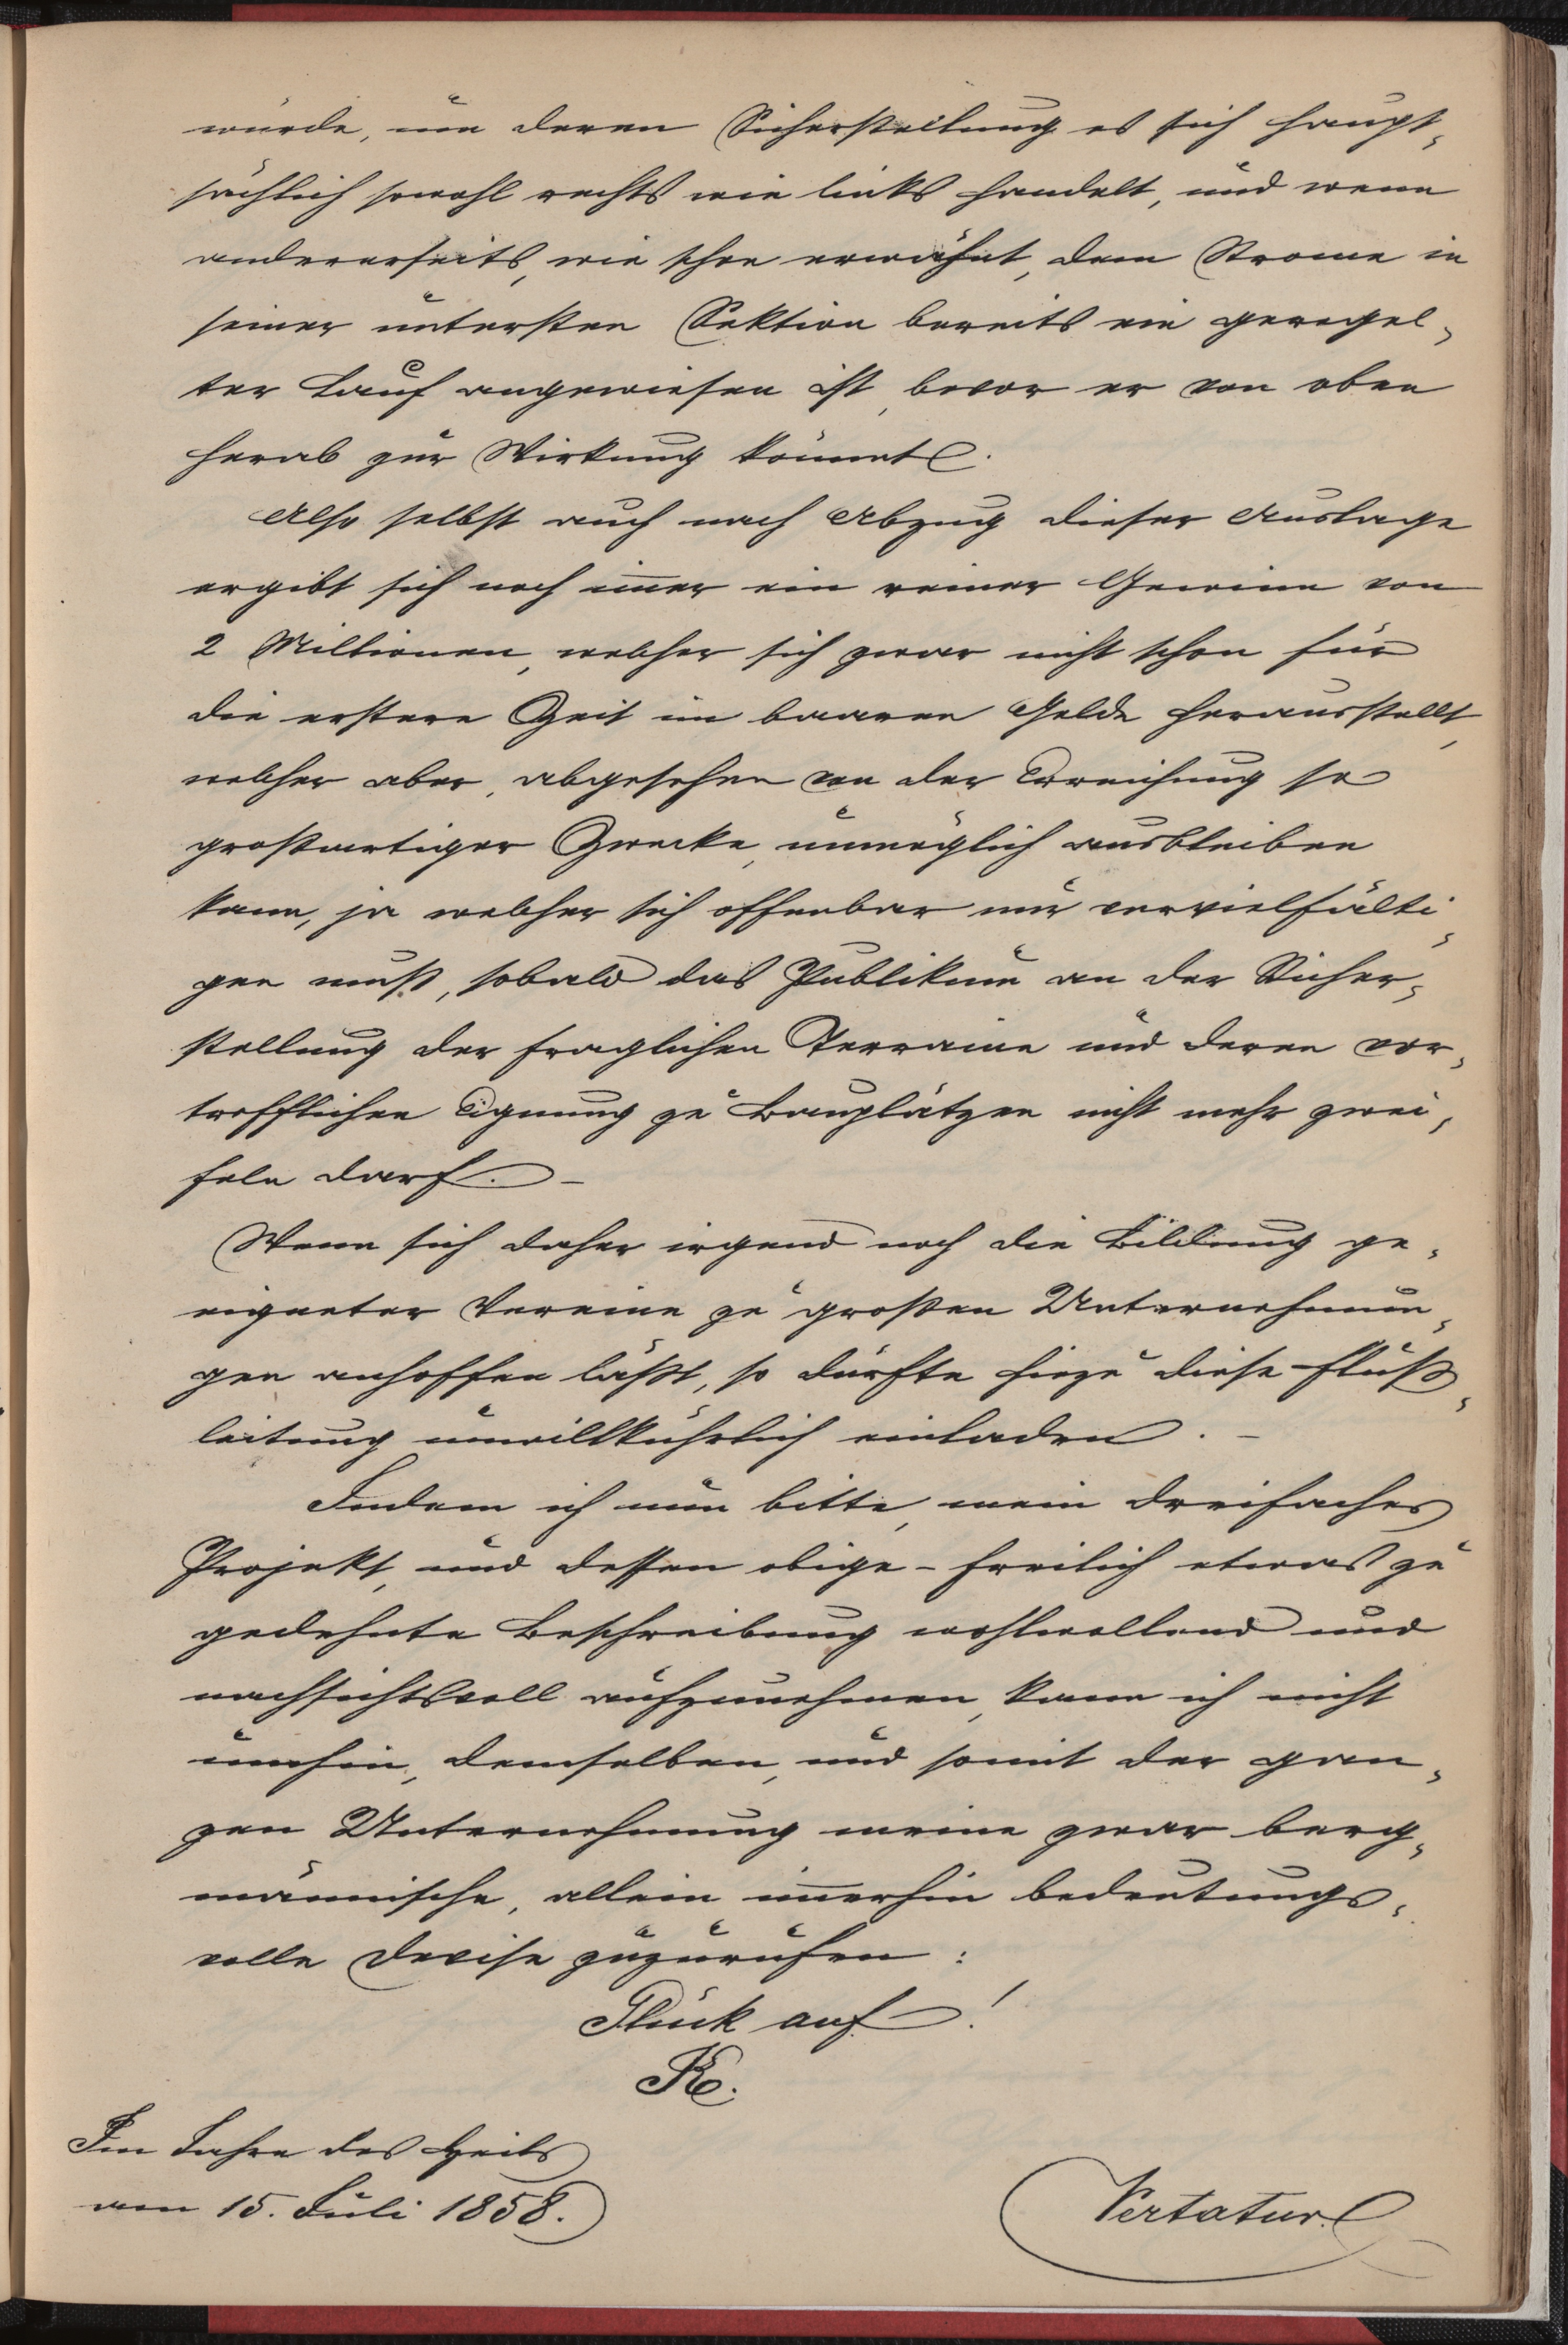 würde, um deren Sicherstellung es sich haupt-
sächlich sowohl rechts wie links handelt, und wenn
andererseits, wie schon erwähnt, dem Strome in
seiner untersten Sektion bereits ein geregel-
ter Lauf angewiesen ist, bevor er von oben
herab zur Wirkung kömmt.
Also selbst auch nach Abzug dieser Auslage
ergibt sich noch immer ein reiner Gewinn von
2 Millionen, welcher sich zwar nicht schon für
die erstere Zeit im baaren Gelde herausstellt,
welcher aber, abgesehen von der Erreichung so
großartiger Zwecke, unmöglich ausbleiben
kann, ja welcher sich offenbar nur vervielfälti-
gen muß, sobald das Publikum an der Sicher-
stellung der fraglichen Terraine und deren vor-
trefflichen Eignung zu Bauplätzen nicht mehr zwei-
feln darf. –
Wenn sich daher irgend noch die Bildung ge-
eigneter Vereine zu großen Unternehmun-
gen anhoffen läßt, so dürfte hiezu diese Fluß-
leitung unwillkührlich einladen. –
Indem ich nun bitte, mein dreifaches
Projekt, und dessen obige – freilich etwas zu
gedehnte Beschreibung wohlwollend und
nachsichtsvoll aufzunehmen, kann ich nicht
umhin, demselben, und somit der gan-
zen Unternehmung meine zwar berg-
männische, allein immerhin bedeutungs-
volle Devise zuzurufen:
Glück auf!
K.
Im Jahre des Heils
am 15. Juli 1858.
Vertatur